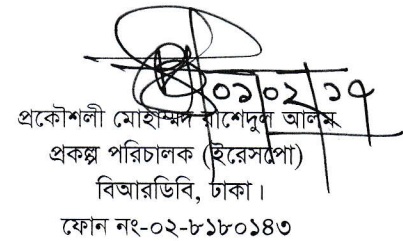 ০১ ০২ ১৭
প্রকৌশলী মোহাম্মদ রাশেদুল আলম
প্রকল্প পরিচালক (ইরেসপো)
বিআরডিবি, ঢাকা।
ফোন নং-০২-৮১৮০১৪৩